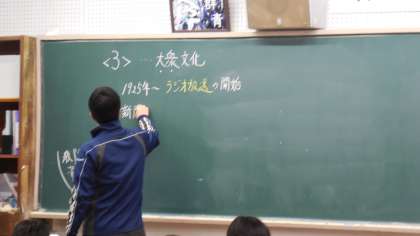 <3> ‥‥大衆文化
1925年～ ラジオ放送の開始
新